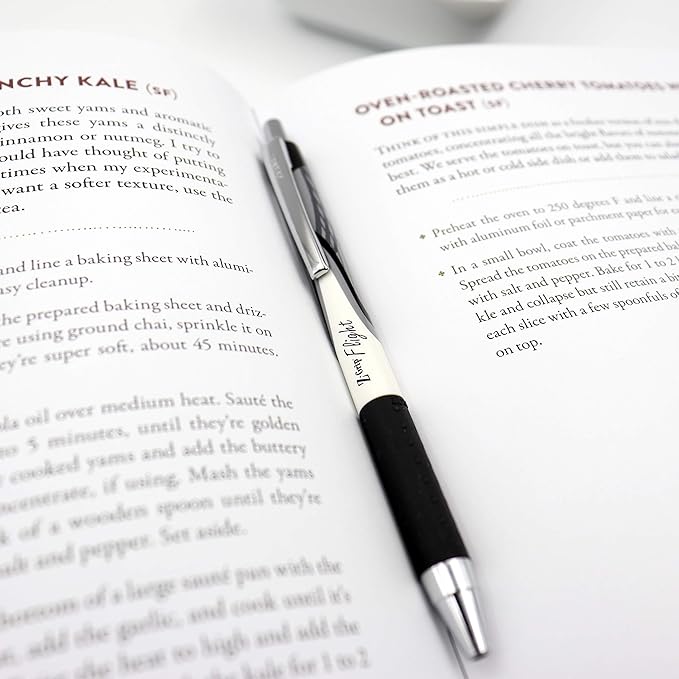 NCHY KALE (SF)
oth sweet yams and aromatic
gives these yams a distinctly
cinnamon or nutmeg. I try to
ould have thought of putting
times when my experimenta-
want a softer texture, use the
ea.
and line a baking sheet with alumi-
asy cleanup.
he prepared baking sheet and driz-
re using ground chai, sprinkle it on
ey're super soft, about 45 minutes.
ola oil over medium heat. Sauté the
to 5 minutes, until they're golden
cooked yams and add the buttery
ncentrate, if using. Mash the yams
k of a wooden spoon until they're
alt and pepper. Set aside.
bottom of a large sauté pan with the
t, add the garlic, and cook until it's
the heat to high and add the
kale for 1 to 2
Z-Grip Flight
OVEN-ROASTED CHERRY TOMATOES
ON TOAST (SF)
THINK OF THIS SIMPLE DISH as a
tomatoes, concentrating all the bright flavors of
best. We serve the tomatoes on toast, but you can also
them as a hot or cold side dish or add them to
Preheat the oven to 250 degrees F and line a
with aluminum foil or parchment paper for
In a small bowl, coat the tomatoes with
Spread the tomatoes on the prepared
with salt and pepper. Bake for 1 to 2
kle and collapse but still retain a bit
each slice with a few spoonfuls of
on top.